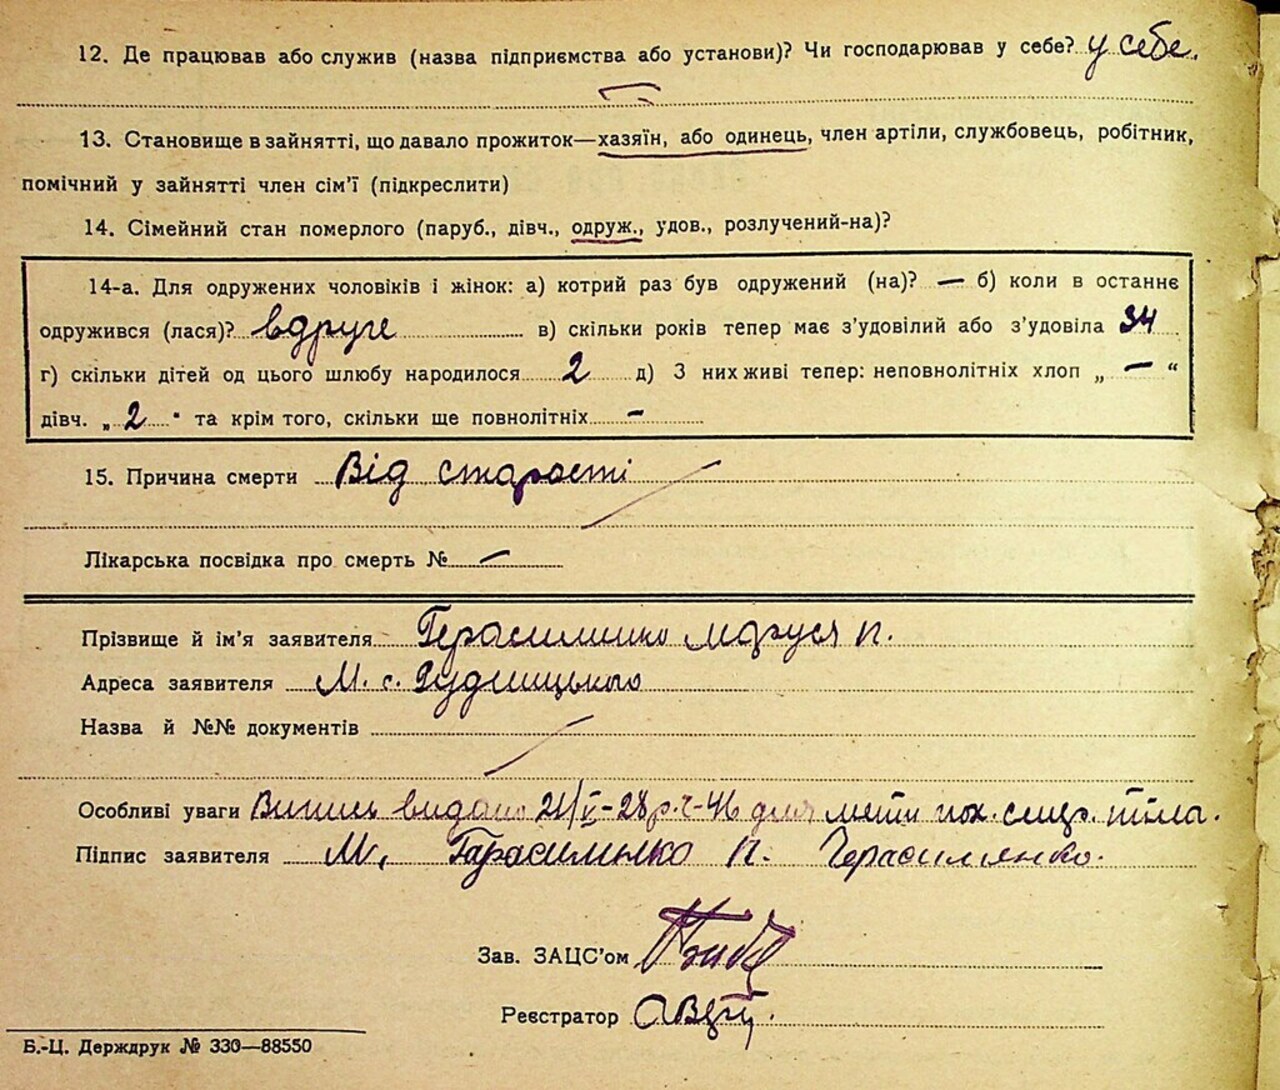 12. Де працював або служив (назва підприємства або установи)? Чи господарював у себе? у себе.
13. Становище в зайнятті, що давало прожиток—хазяїн, або одинець, член артіли, службовець, робітник,
помічний у зайнятті член сім'ї (підкреслити)
14. Сімейний стан померлого (паруб., дівч., одруж., удов., розлучений-на)?
14-а. Для одружених чоловіків і жінок: а) котрий раз був одружений (на)? — б) коли в останнє
одружився (лася)? вдруге в) скільки років тепер має з'удовілий або з'удовіла 34
г) скільки дітей од цього шлюбу народилося 2 д) З них живі тепер: неповнолітніх хлоп „ — “
дівч. „ 2 “ та крім того, скільки ще повнолітніх —
15. Причина смерти Від старости
Лікарська посвідка про смерть № —
Прізвище й ім'я заявителя Маруся П.
Адреса заявителя М. с. Рудницького
Назва й №№ документів
Особливі уваги Випись видано 21/V-28 р. ч-46 для мети пох. тіла.
Підпис заявителя М. Гарасимько П. Герасимянко.
Зав. ЗАЦС'ом
Реєстратор
Б.-Ц. Держдрук № 330—88550